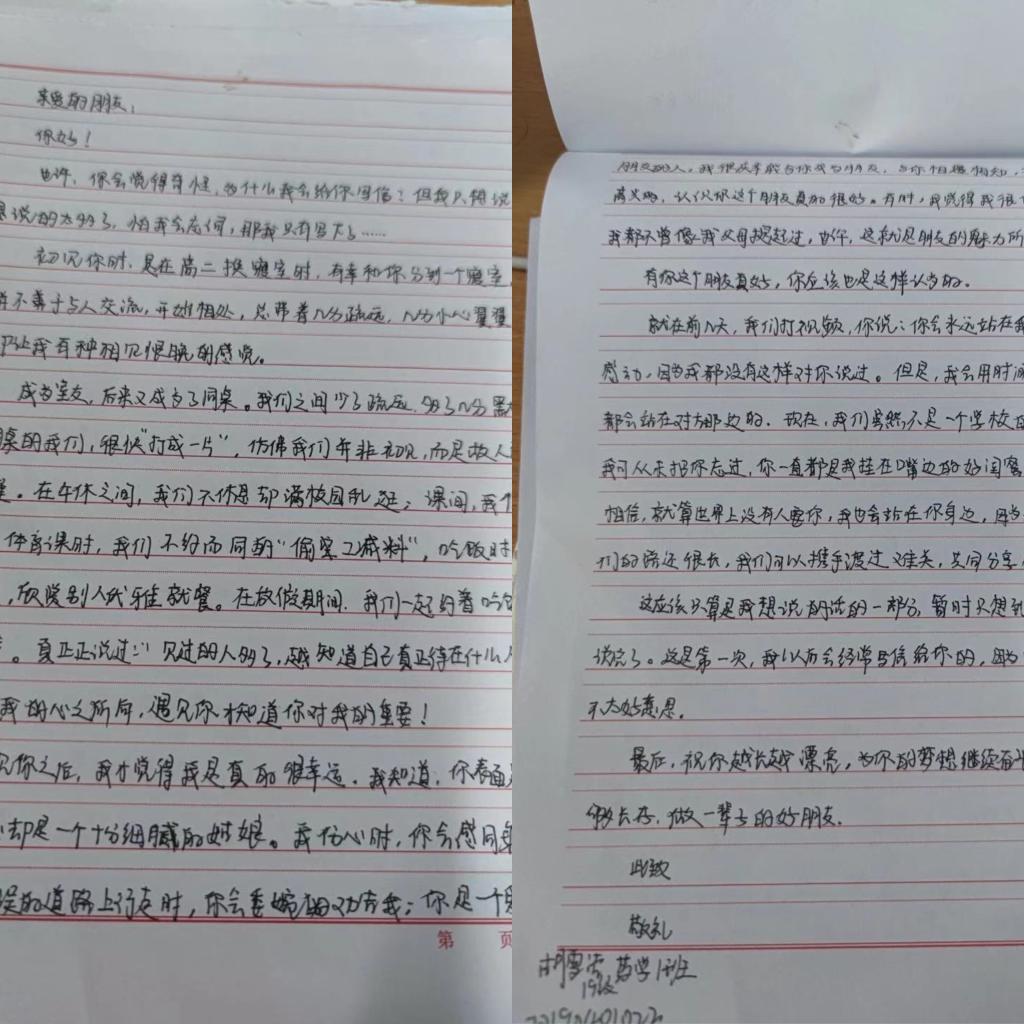 亲爱的朋友：
你好！
也许，你会觉得奇怪，为什么我会给你写信？但我只得说
想说的太多了，怕我会忘记，那我只有写下了……
初见你时，是在高二换寝室时，有幸和你分到一个寝室，
并不善于与人交流，开始相处，总带着几分疏远，几分小心翼翼
却让我有种相见恨晚的感觉。
成为室友，后来又成为了同桌。我们之间少了疏远，多了几分默
桌的我们，很快"打成一片"，仿佛我们并非初见，而是故人
。在午休之间，我们不休息却满校园乱逛；课间，我们
体育课时，我们不约而同的"偷工减料"，吃饭时
，欣赏别人优雅就餐。在放假期间，我们一起约着吃
。真正正说过："见过的人多了，越知道自己真正待在什么人
我的心之所向，遇见你才知道你对我的重要！
见你之后，我才觉得我是真的很幸运。我知道，你表面
却是一个十分细腻的姑娘。我伤心时，你会感同身
误的道路上行走时，你会委婉的劝告我；你是一个
第 页
朋友的人，我很庆幸能与你成为朋友，与你相遇相知，
，认识你这个朋友真的很好。有时，我觉得我很
我都不曾像我父母提起过，也许，这就是朋友的魅力所
有你这个朋友真好，你应该也是这样认为的。
就在前几天，我们打视频，你说：你会永远站在我
感动，因为我都没有这样对你说过。但是，我会用时间
都会站在对方那边的。现在，我们虽然不是一个学校
我可从未把你忘过，你一直都是我挂在嘴边的好闺蜜
相信，就算世界上没有人要你，我也会站在你身边，因为
们的路还很长，我们可以携手渡过难关，共同分享
这应该只算是我想说的话的一部分，暂时只想到
说完了。这是第一次，我以后会经常写信给你的，因为
不大好意思。
最后，祝你越长越漂亮，为你的梦想继续奋斗
够长存，做一辈子的好朋友。
此致
敬礼
胡雪 药学1班
19级